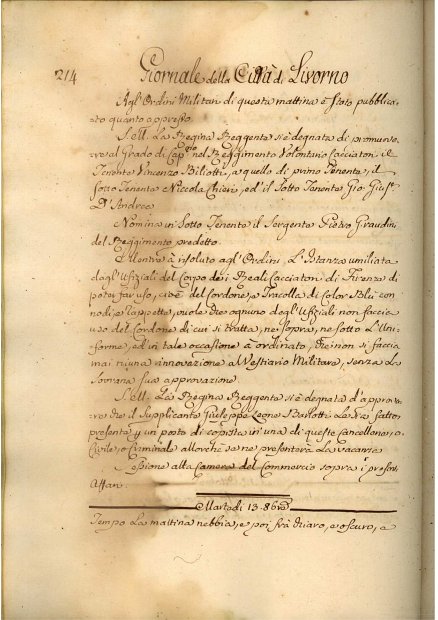 214 Giornale della Città di Livorno
Agl'Ordini Militari di questa mattina è stato pubblica-
to quanto appresso.
S. M. La Regina Reggente si è degnata di promuove-
re al Grado di Cap.no nel Reggimento Volontario Cacciatori il
Tenente Vincenzo Biliotti, a quello di primo Tenente, il
sotto Tenente Niccola Chieri, ed il Sotto Tenente Gio:
D'Andrea
Nomina in Sotto Tenente il Sergente Pietro Giraudini
del Reggimento predetto.
Inoltre à risoluto agl'Ordini, L'Istanza umiliata
dagl'Ufiziali del Corpo dei Reali Cacciatori di Firenze di
poter far uso, cioè del Cordone, a Tracolla di Color Blù con
nodi, e Nappetta, vuole che ognuno degl'Ufiziali non faccia
uso del Cordone di cui si tratta, ne sopra, ne sotto l'Uni-
forme, ed in tale occasione à ordinato, che non si faccia
mai niuna innovazione al Vestiario Militare, senza La
Sovrana sua approvazione.
S. M. La Regina Reggente si è degnata d'approva-
re che il Supplicante Giuseppe Leone Barlotti La
presente p un posto di copista in una di queste Cancellerie, o
Civile, o Criminale allorchè se ne presenterà La vacanza
Sessione alla Camera del Commercio sopra i presenti
Affari.
Martedì 13. 8bre
Tempo La mattina nebbia, e poi chiaro, e oscuro, a